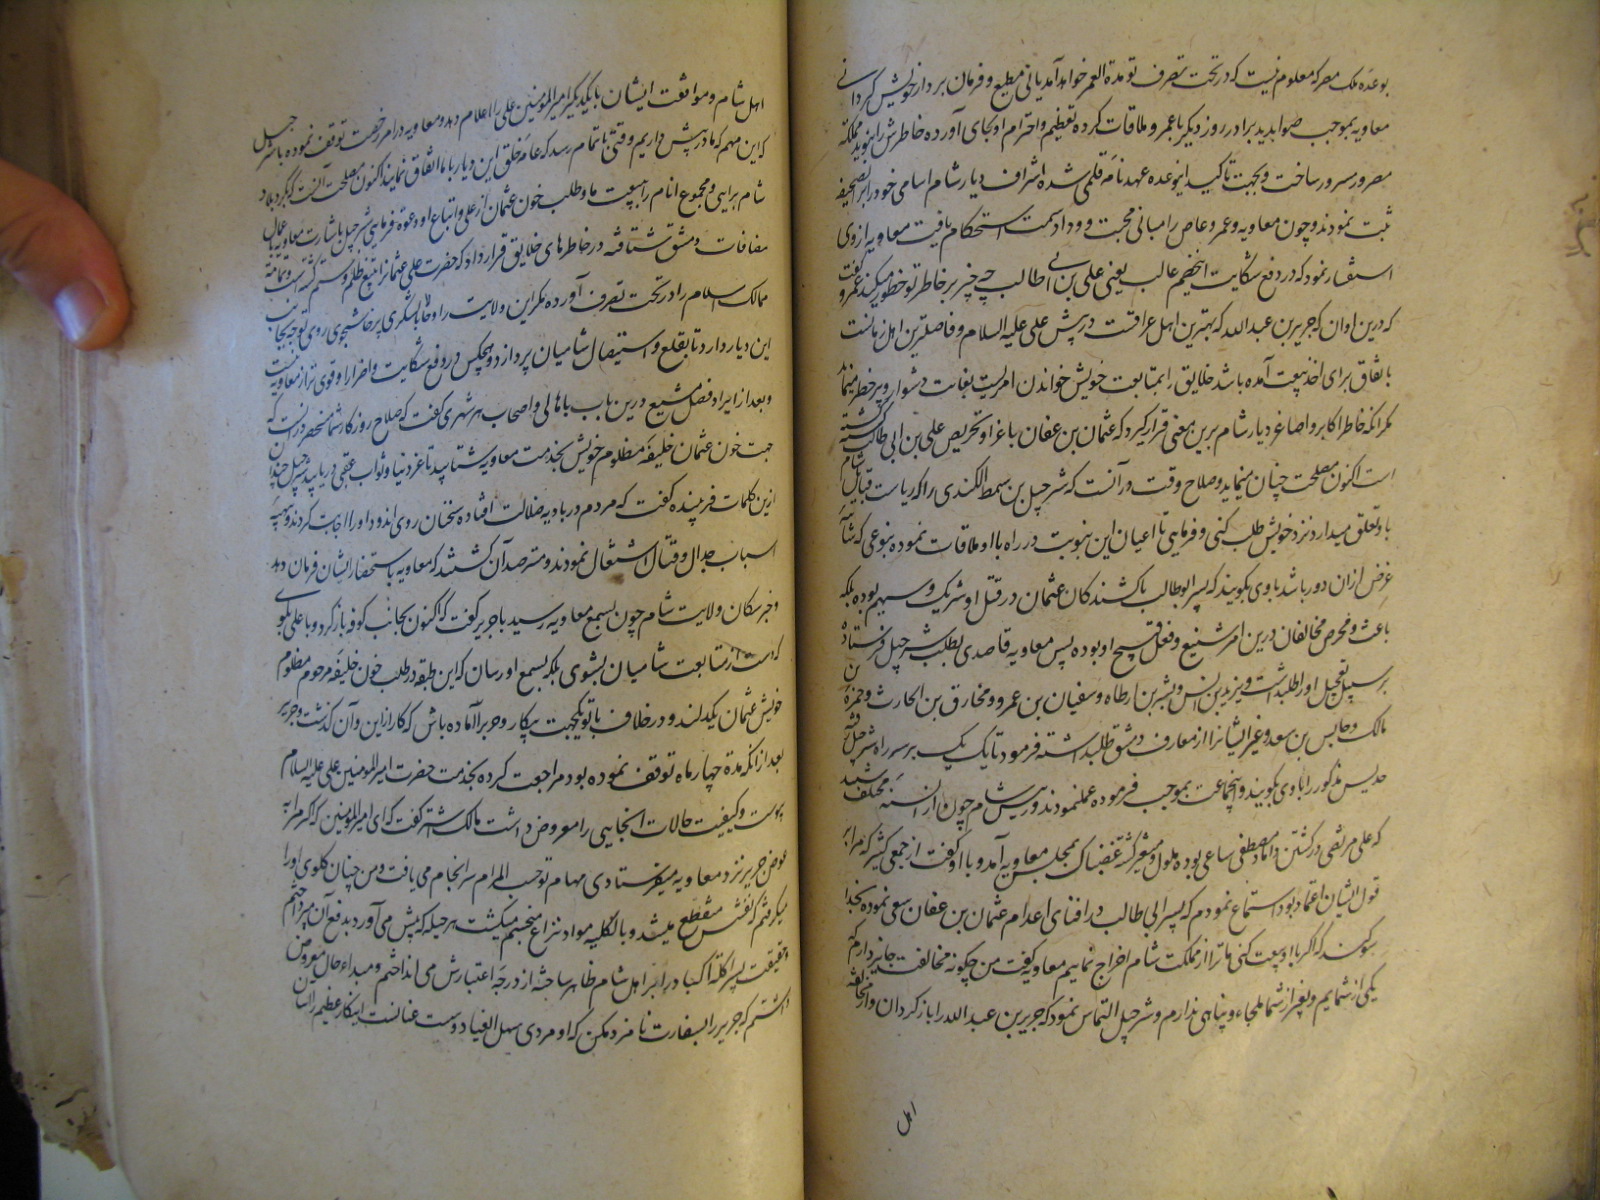 بوعده ملک مصر که معلوم نیست که در تحت تصرف تو مدة العمر خواهد آمد یا نی مطیع و فرمان بردار خویش گردانی
معاویه بموجب صوابدید برادر روز دیگر با عمرو ملاقات کرده تعظیم و احترام او بجای آورده خاطرش را بنوید مملکة
مصر و سرور ساخت و بجهت تاکید این وعده عهدنامه قلمی شده اشراف دیار شام اسامی خود را بر آن صحیفه
ثبت نمودند و چون معاویه و عمرو عاص را مبانی محبت و وداد سمت استحکام یافت معاویه از وی
استفسار نمود که در دفع شکایت این خصم غالب یعنی علی بن ابی طالب چه چیز بر خاطر تو خطور میکند عمرو گفت
که درین اوان که جریر بن عبد الله که بهترین اهل عراقست در پیش علی علیه السلام و فاضلترین اهل زمانست
باتفاق برای اخذ بیعت آمده باشد خلایق را بمتابعت خویش خواندن امریست بغایت دشوار و پر خطر مینماید
مگر آنکه خاطر اکابر و اصاغر دیار شام برین معنی قرار گیرد که عثمان بن عفان باغرا و تحریص علی بن ابی طالب کشته
است اکنون مصلحت چنان مینماید و صلاح وقت در آنست که شرحبیل بن سمط الکندی را که ریاست قبایل شام
باو تعلق میدارد نزد خویش طلب کنی و فرمایی تا اعیان این نوبت در راه با او ملاقات نموده بنوعی که شائبه
غرض از آن دور باشد با وی بگویند که پسر ابو طالب با کشندگان عثمان در قتل او شریک و سهیم بوده بلکه
باعث و محرص مخالفان درین امر شنیع و فعل قبیح او بوده پس معاویه قاصدی بطلب شرحبیل فرستاده
بر سبیل تعجیل او را طلبداشت و یزید بن انس و بشر بن ارطاه و سفیان بن عمرو و مخارق بن الحارث و حمزة بن
مالک و حابس بن سعد و غیر ایشانرا از معارف دمشق طلبداشته فرمود تا یک یک بر سر راه شرحبیل رفته
حدیث مذکور را با وی بگویند و آنجماعت بموجب فرموده عمل نمودند و رئیس شام چون از السنه مختلف شنید
که علی مرتضی در کشتن داماد مصطفی ساعی بوده ملول و متغیر گشته غضبناک بمجلس معاویه آمد و با او گفت از جمعی کثیر که مرا بر
قول ایشان اعتماد بود استماع نمودم که پسر ابی طالب در افنای اعدام عثمان بن عفان سعی نموده بخدا
سوگند که اگر با او بیعت کنی ما ترا از مملکت شام اخراج نماییم معاویه گفت من چگونه مخالفت جایز دارم که
یکی از شمایم و بغیر از شما ملجاء و پناهی ندارم و شرحبیل التماس نمود که جریر بن عبد الله را باز گردان و از مخالفة
اهل
اهل شام و موافقت ایشان با یکدیگر امیر المؤمنین علی را اعلام دهد و معاویه در امر رخصت توقف نموده با شرحبیل
که این مهم که ما در پیش داریم وقتی باتمام رسد که عامه خلق این دیار با ما اتفاق نمایند اکنون مصلحت آنست که گرد بلاد
شام برایی و مجموع انام را به بیعت ما و طلب خون عثمان از علی و اتباع او دعوة فرمایی شرحبیل باشارت معاویه باعمال
مضافات دمشق شتافته در خاطرهای خلایق قرار داد که حضرت علی عثمانرا بتیغ ظلم و ستم کشته است و تمامة
ممالک اسلام را در تحت تصرف آورده مگر این ولایت را و حالا بالشکری پرخاشجوی روی توجه بجانب
این دیار دارد تا بقلع و استیصال شامیان پردازد و هیچکس در دفع شکایت و اضرار او قوی تر از معاویه نیست
و بعد از ایراد فصل مشبع درین باب با هالی و اصحاب هر شهری گفت که صلاح روزگار شما منحصر در انست که
جهت خون عثمان خلیفه مظلوم خویش بخدمت معاویه شتابید تا عز دنیا و ثواب عقبی دریابید شرحبیل چندان
ازین کلمات فریبنده گفت که مردم در بادیه ضلالت افتاده سخنان روی اندود او را اجابت کردند و بتهیه
اسباب جدال و قتال اشتغال نمودند و مترصد آن گشتند که معاویه باستحضار ایشان فرمان دهد
و خبر سکان ولایت شام چون بسمع معاویه رسید با جریر گفت که اکنون بجانب کوفه باز گرد و با علی بگوی
که است از متابعت شامیان بشوی بلکه بسمع او رسان که این طبقه در طلب خون خلیفه مرحوم مظلوم
خویش عثمان یکدلند و در خلاف با تو یکجهت پیکار و حرب را آماده باش که کار از این و آن گذشت و جریر
بعد از آنکه مدة چهار ماه توقف نموده بود مراجعت کرده بخدمت حضرت امیر المومنین علی علیه السلام
پیوست و کیفیت حالات آنجایی را معروض داشت مالک اشتر گفت که ای امیر المومنین که اگر مرا به
عوض جریر نزد معاویه میفرستادی مهام تو حسب المرام سرانجام می یافت و من چنان گلوی او را
میگرفتم که نفسش منقطع میشد و بالکلیه مواد نزاع منحسم میگشت هر حیله که پیش می آورد بدفع آن میپرداختم
و حقیقت پسر آکلة اکباد را بر اهل شام ظاهر ساخته از درجه اعتبارش می انداختم و مبداء حال معروض
داشتم که جریر را بسفارت نامزد مکن که او مردی سهل القیاد و سست عنانست اینکار عظیم را شایسته